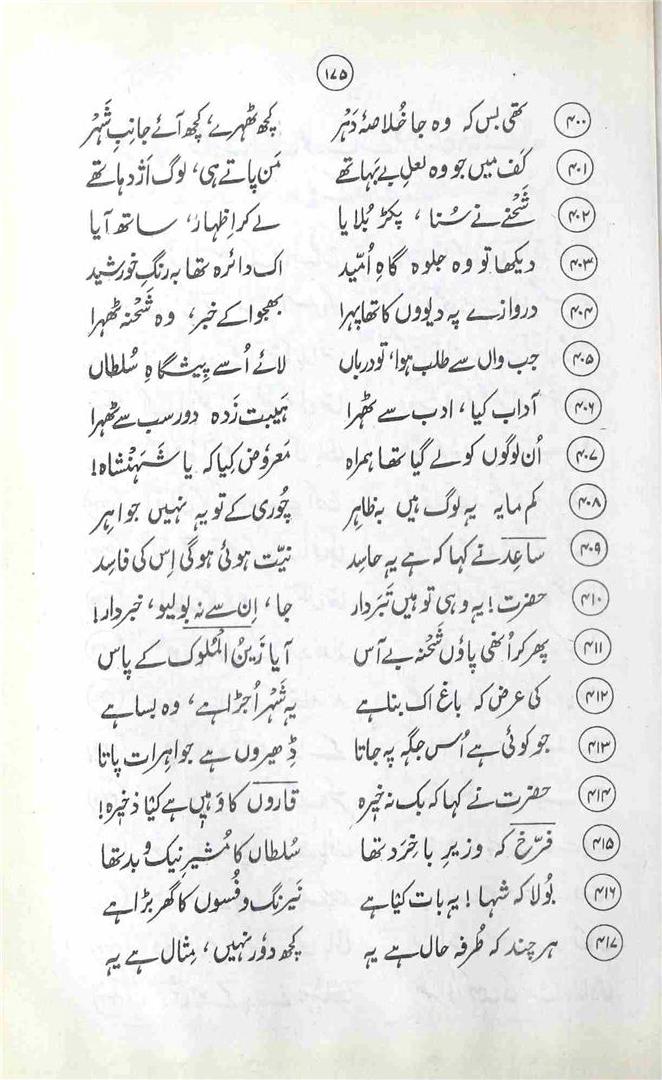 ۱۷۵
۴۰۰ تھی بس کہ وہ جا خُلاصۂ دَہْر کچھ ٹھہرے، کچھ آئے جانبِ شَہْر
۴۰۱ کَف میں جو وہ لعلِ بے بہا تھے مَن پاتے ہی، لوگ اَژْدہا تھے
۴۰۲ شَحْنے نے سُنا، پکڑ بُلایا لے کر اِظہار، ساتھ آیا
۴۰۳ دیکھا تو وہ جلوہ گاہِ اُمّید اک دائرہ تھا بہ رنگِ خورشید
۴۰۴ دروازے پہ دیووں کا تھا پہرا بھجوا کے خبر، وہ شَحْنہ ٹھہرا
۴۰۵ جب واں سے طلب ہوا، تو درباں لائے اُسے پیشگاہِ سُلطاں
۴۰۶ آداب کیا، ادب سے ٹھہرا ہَیبت زَدہ دور سب سے ٹھہرا
۴۰۷ اُن لوگوں کو لے گیا تھا ہمراہ مَعروٗض کِیا کہ یا شَہَنْشاہ!
۴۰۸ کم مایہ یہ لوگ ہیں بہ ظاہِر چُوری کے تو یہ نہیں جواہِر
۴۰۹ ساعِد نے کہا کہ ہے یہ حاسِد نیّت ہوئی ہوگی اِس کی فاسِد
۴۱۰ حضرت! یہ وہی تو ہیں تَبَردار جا، اِن سے نہ بولیو، خبردار!
۴۱۱ پھر کر اُنھی پاؤں شَحْنہ بے آس آیا زَینُ الْمُلوک کے پاس
۴۱۲ کی عرض کہ باغ اک بنا ہے یہ شَہْر اُجڑا ہے، وہ بسا ہے
۴۱۳ جو کوئی ہے اُس جگہ پہ جاتا ڈھیروں ہے جواہرات پاتا
۴۱۴ حضرت نے کہا کہ بک نہ خِیرہ قاروں کا وَہیں ہے کیٰا ذخیرہ!
۴۱۵ فرّخ کہ وزیرِ باخِرَد تھا سُلطاں کا مُشیرِ نیک و بد تھا
۴۱۶ بُولا کہ شہا! یہ بات کیٰا ہے نَیرنگ و فُسوں کا گھر بڑا ہے
۴۱۷ ہر چند کہ طُرفہ حال ہے یہ کچھ دوٗر نہیں، مِثال ہے یہ